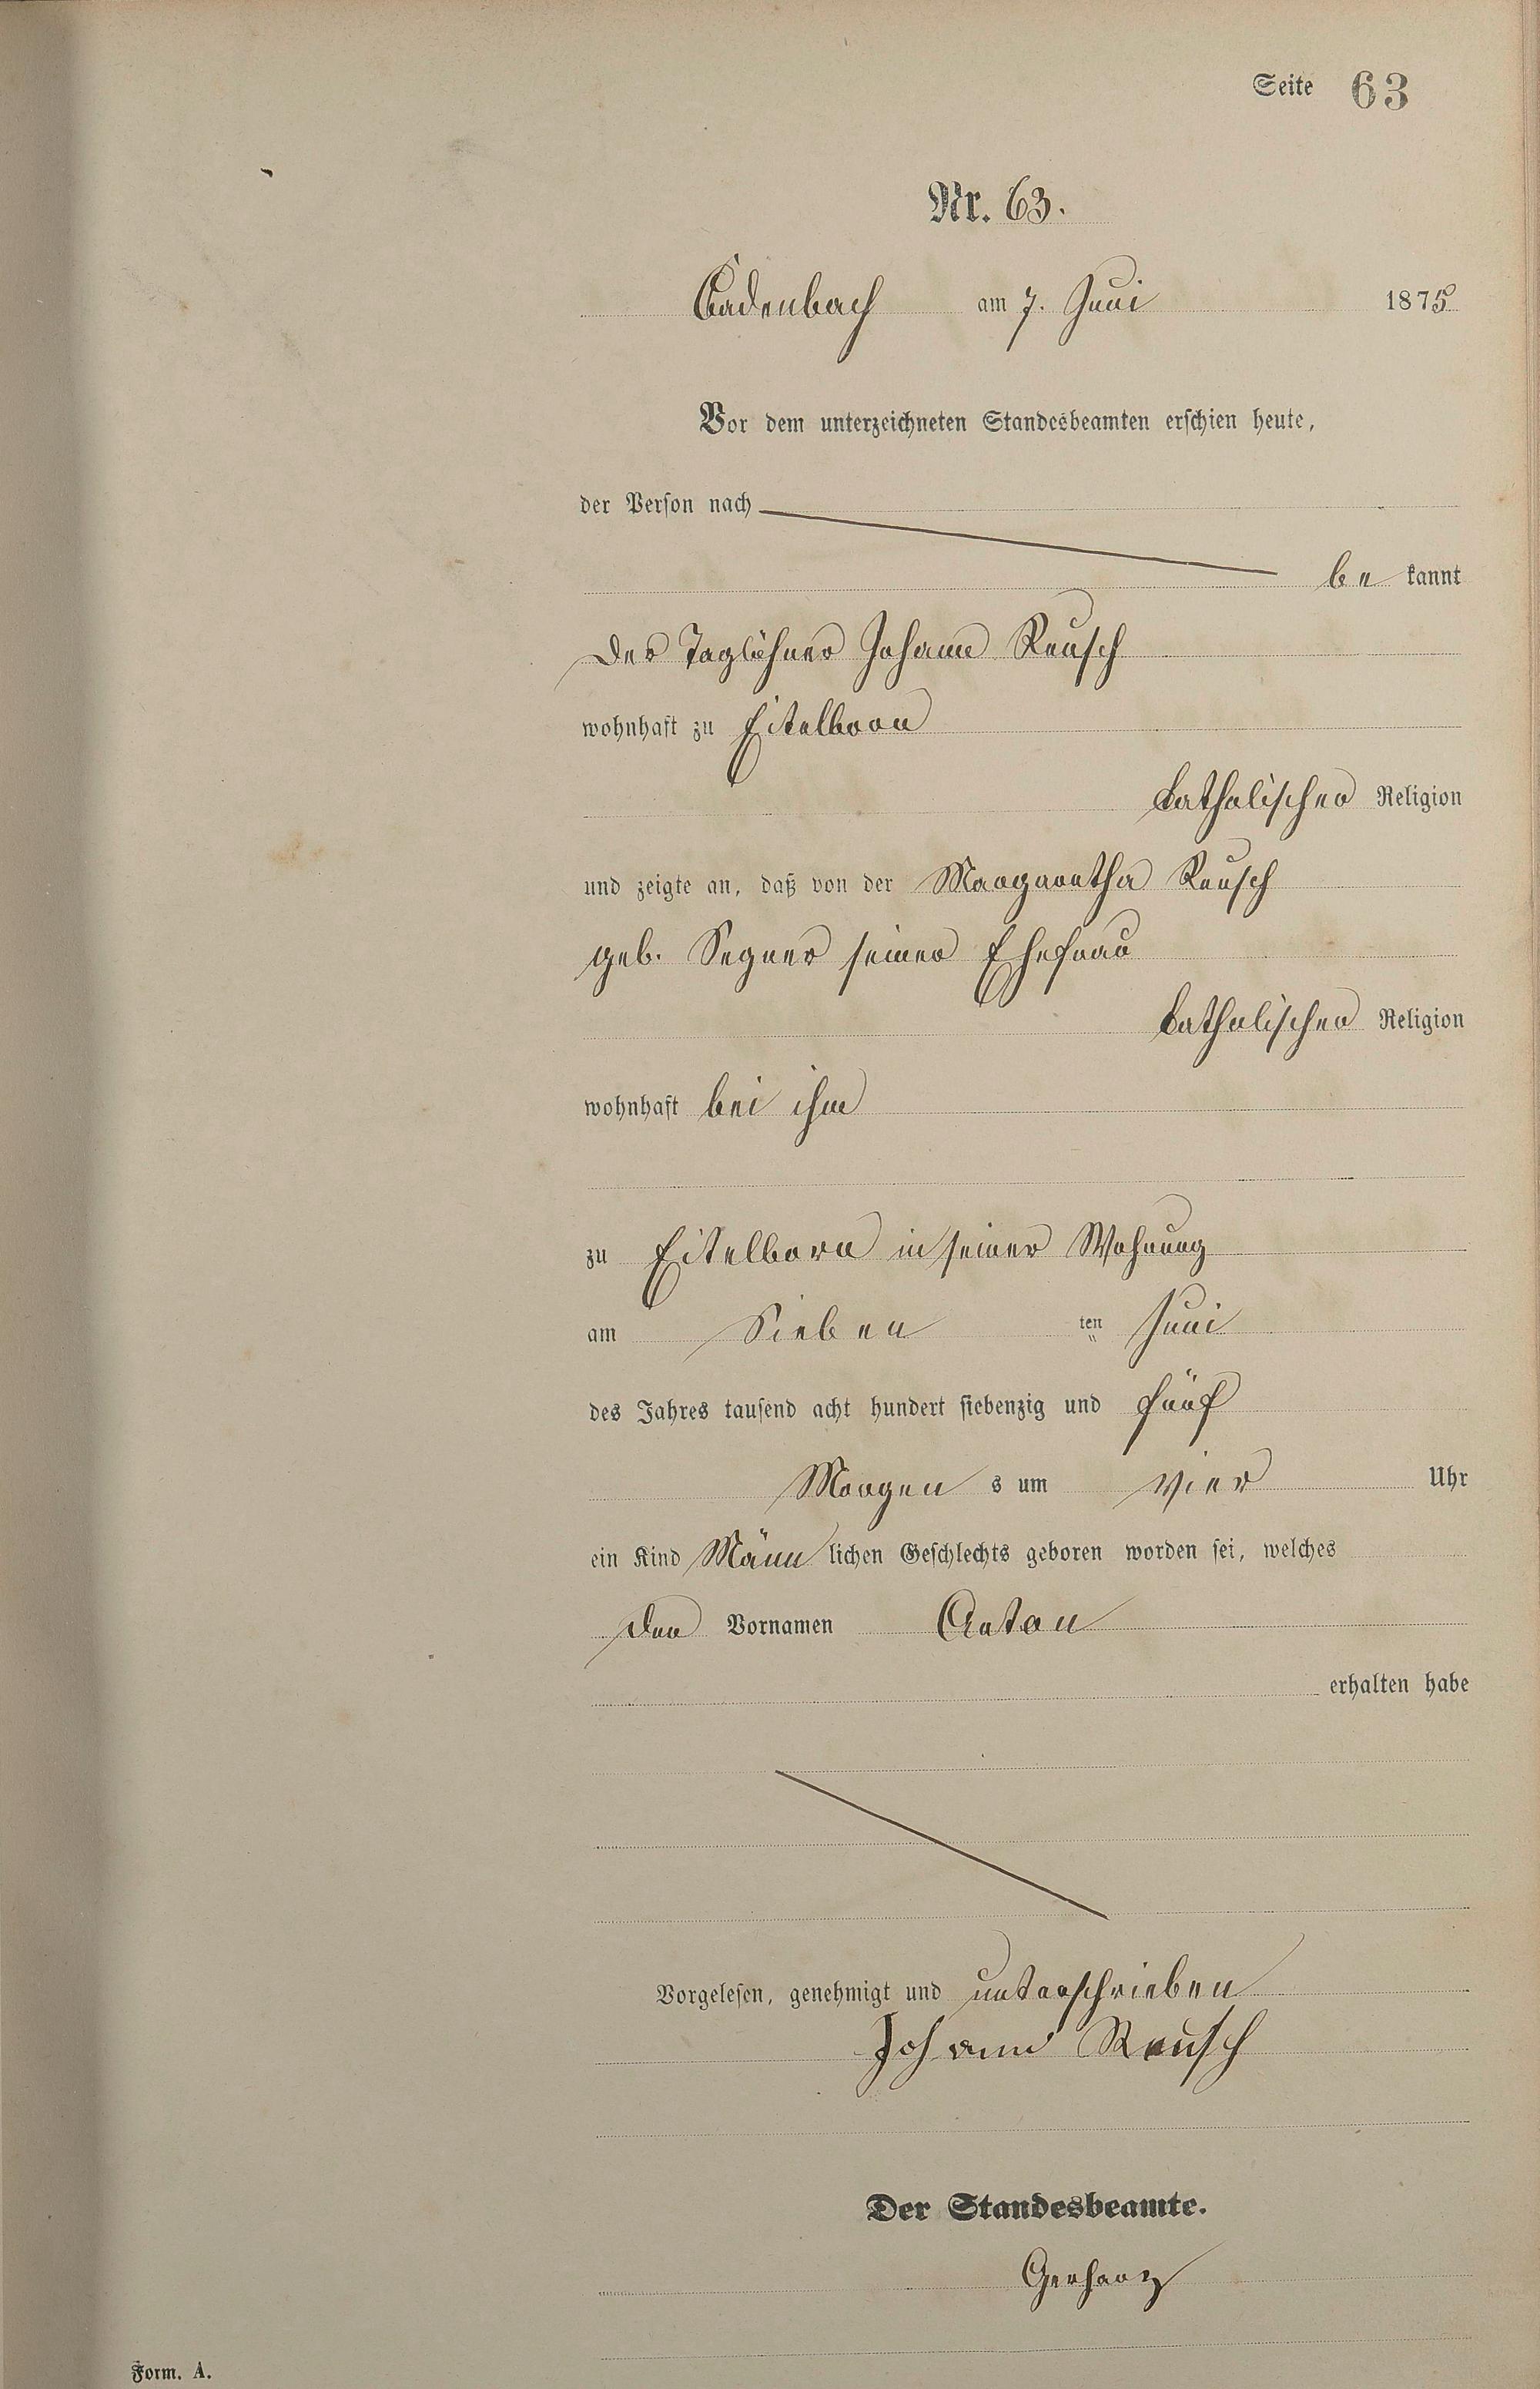 Seite 63
Nr. 63.
Cadenbach am 7. Juni 1875
Vor dem unterzeichneten Standesbeamten erschien heute,
der Person nach
be kannt
der Taglöhner Johann Reusch
wohnhaft zu Eitelborn
katholischer Religion
und zeigte an, daß von der Margaretha Reusch
geb. Segner seiner Ehefrau
katholischer Religion
wohnhaft bei ihm
zu Eitelborn in seiner Wohnung
am Sieben ten Juni
des Jahres tausend acht hundert siebenzig und fünf
Morgen s um vier Uhr
ein Kind Männ lichen Geschlechts geboren worden sei, welches
den Vornamen Anton
erhalten habe
Vorgelesen, genehmigt und unterschrieben
Johann Reusch
Der Standesbeamte.
Gerharz
Form. A.